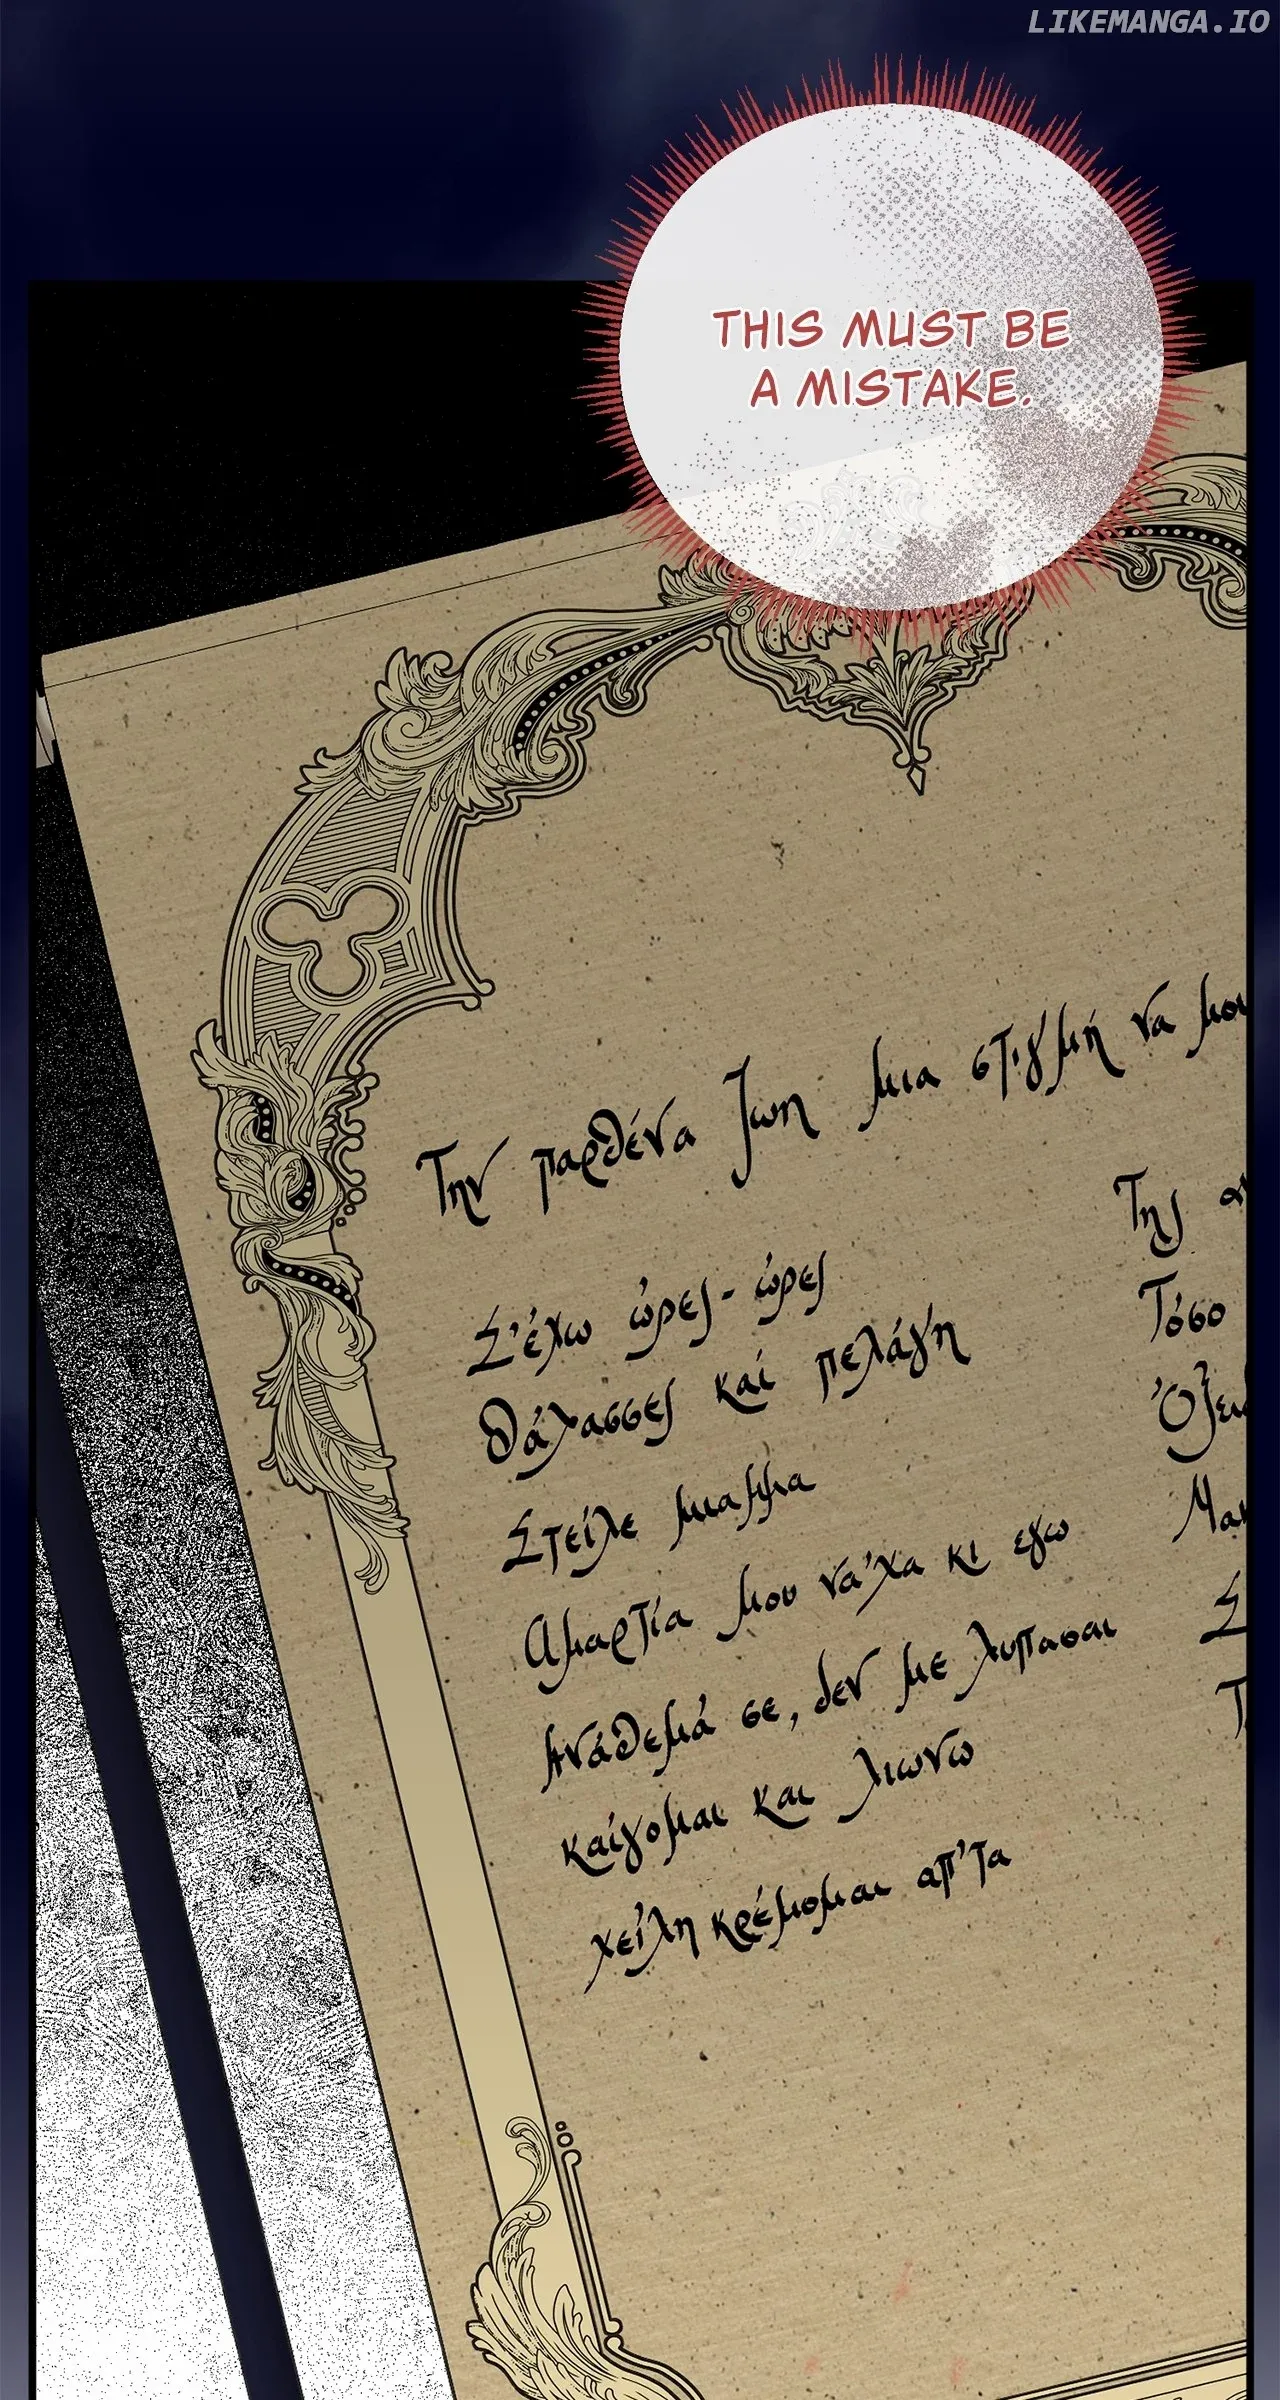 LIKEMANGA.IO
THIS MUST BE
A MISTAKE.
Την παρθένα ζωη μια στιγμή να μου
Σ'έχω ώρες-ώρες
Θάλασσες καί πελάγη
Στείλε μιαμμα
Αμαρτία μου νά'χα κι εγω
Ανάθεμά σε, δεν με λυπασαι
καίγομαι και λιωνω
χείλη κρέμομαι απ'τα
Της
Τόσο